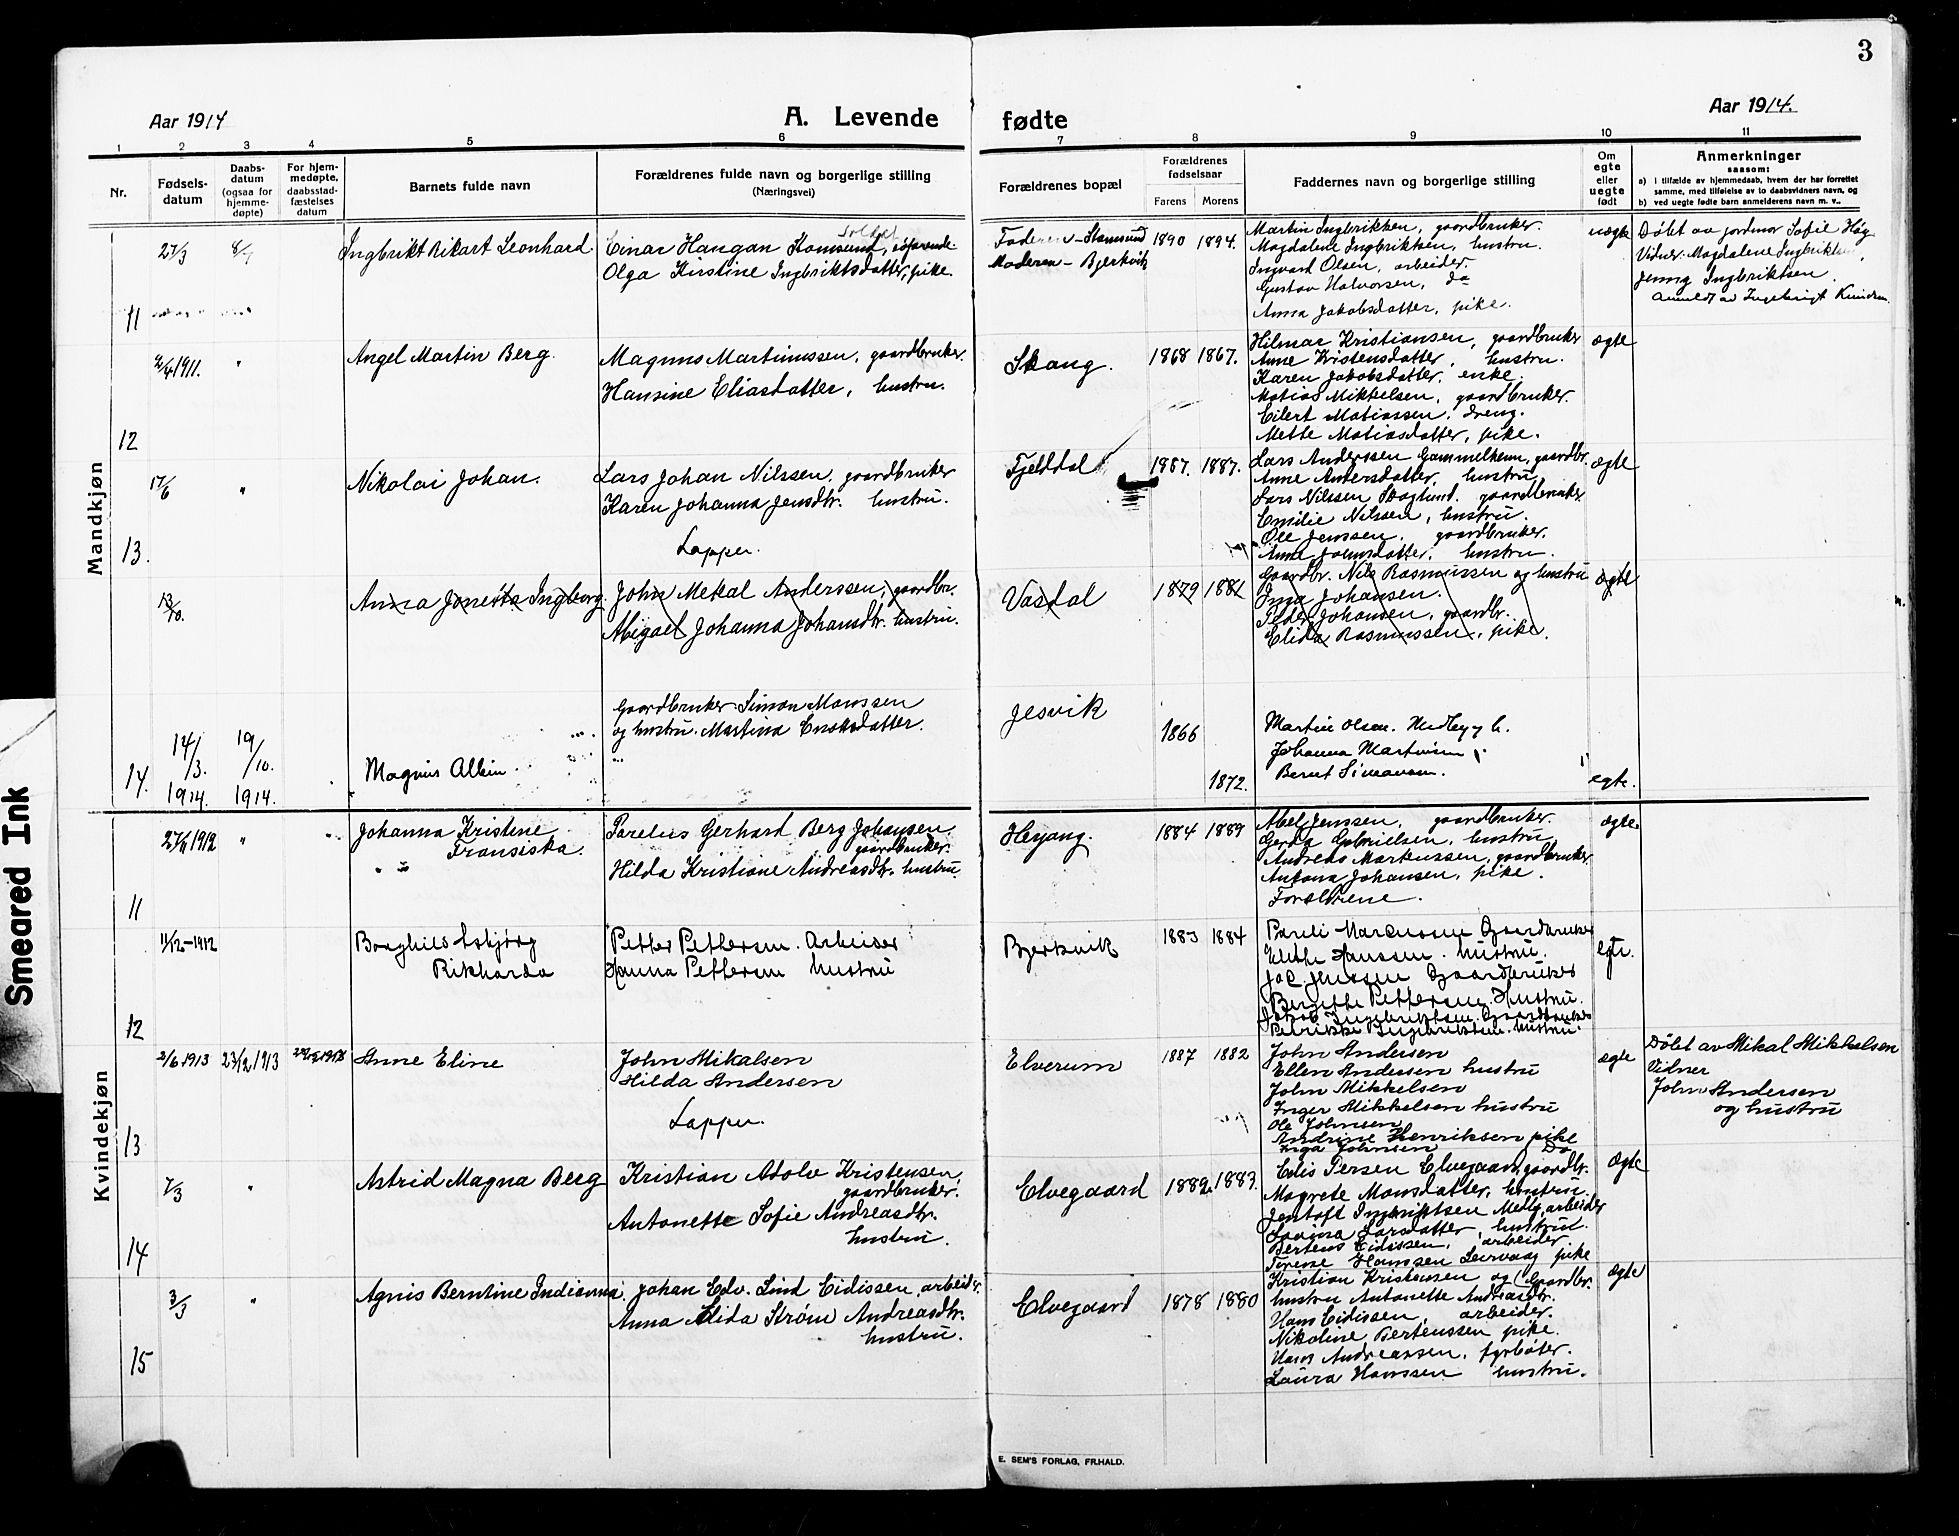 3
Aar 1914
A. Levende
fødte
Aar 1914.
1 2 3 4 5 6 7 8 9 10 11
Nr.
Fødsels-
datum
Daabs-
datum
(ogsaa for
hjemme-
døpte)
For hjem-
medøpte,
daabsstad-
fæstelses
datum
Barnets fulde navn
Forældrenes fulde navn og borgerlige stilling
(Næringsvei)
Forældrenes bopæl
Forældrenes
fødselsaar
Farens Morens
Faddernes navn og borgerlig stilling
Om
egte
eller
uegte
født
Anmerkninger
saasom:
a) i tilfælde av hjemmedaab, hvem der har forrettet
samme, med tilføielse av to daabsvidners navn, og
b) ved uegte fødte barn anmelderens navn m. v..
Mandkjøn
11
27/3
Ingbrikt Rikart Leonhard
Soldat
Einar Haugan
Olga Kirstine Ingbriktsdatter, pike.
Faderen - Stamsund
Moderen - Bjerkvik
1890 1894.
Martin Ingbriktsen, gaardbruker.
Magdalene Ingbriktsen, hustru.
Ingvard Olsen, arbeider.
Gustav Halvorsen, do
Anna Jakobsdatter, pike.
uægte
Døbt av jordmor Sofie Høg
Vidner: Magdalene Ingbriktsen
Jenny Ingbriktsen.
12
2/4 1911.
"
Angel Martin Berg.
Magnus Martinussen, gaardbruker.
Hansine Eliasdatter, hustru.
Skaug.
1868 1867.
Hilmar Kristiansen, gaardbruker
Anne Kristensdatter, hustru.
Karen Jakobsdatter, enke.
Matias Mikkelsen, gaardbruker.
Eilert Matiassen, dreng.
Mette Matiasdatter, pike.
ægte
13.
17/6
"
Nikolai Johan.
Lars Johan Nilssen, gaardbruker
Karen Johanna Jensdtr. hustru.
Lapper.
Fjelddal
1887. 1887.
Lars Anderssen Gammelheim, gaardbr.
Anne Andersdatter, hustru
Lars Nilssen Skoglund, gaardbruker
Emilie Nilssen, hustru.
Ole Jenssen, gaardbruker.
Anna Johnsdatter, hustru.
ægte
13/10.
Anna Jonetta Ingborg.
John Mekal Anderssen, gaardbr.
Abigael Johanna Johansdtr. hustru.
Vasdal
1879 1881
Gaardbr. Nils Rasmussen og hustru
Ima Johansen.
Peder Johansen, gaardbr.
Elida Rasmussen, pike.
ægte
14.
14/3.
1914.
19/10.
1914.
Magnus Albin
Gaardbruker Simon Monssen
og hustru Martina Enoksdatter.
Jesvik
1866
1872.
Martin Olsen.
Johanna
Bernt Simonsen.
egte.
Kvindekjøn
11
1912
"
Johanna Kristine
Fransiska.
Parelius Gerhard Berg Johansen,
gaardbruker.
Hilda Kristiane Andreasdtr. hustru.
Heyang.
1884 1889
Abel Jenssen, gaardbruker.
Gerda Gabrielsen, hustru
Andreas Martenssen, gaardbruker.
Antona Johansen, pike.
Forældrene.
ægte.
12
11/12-1912
Borghild Esbjørg
Rikharda
Petter Pettersen. Arbeider
Hanna Pettersen hustru
Bjerkvik
1883 1884
Pareli Markussen Gaardbruker
Hanssen. hustru.
Jenssen Gaardbruker
Bergitte Pettersen. Hustru.
Jakob Ingebriktsen. Gaardbruker
Ingebriktsen. hustru.
egte.
13
2/6 1913
23/12 1913
Anne Eline
John Mikalsen
Hilda Andersen
Lapper.
Elverum
1887 1882
John Andersen
Ellen Andersen hustru
John Mikkelsen
Inger Mikkelsen hustru
Ole Johnsen
Andrine Henriksen pike
Inga Johnsen Do
ægte
Døbt av Mikal Mikkelsen
Vidner
John Andersen
og hustru
14
7/3
"
Astrid Magna Berg
Kristian Adolv Kristensen,
gaardbruker.
Antonette Sofie Andreasdtr.
hustru.
Elvegaard
1882. 1883.
Edis Persen Elvegaard, gaardbr.
Magrete Monsdatter, hustru.
Jentoft Ingbriktsen Medby, arbeider
Lovisa Larsdatter, hustru.
Bertens Eidissen, arbeider.
Hanssen Leirvaag pike
ægte
15
3/3
"
Agnis Berntine Indianna.
Johan Edv. Lind Eidissen, arbeider.
Anna Elida Strøm Andreasdtr.
hustru.
Elvegaard
1878 1880
Kristian Kristensen og (Gaardbr.
hustru Antonette Andreasdtr.
Hans Eidissen, arbeider.
Nikoline Bertenssen pike.
Hans Andreassen, fyrbøter.
Laura Hanssen hustru.
ægte
E. SEM'S FORLAG, FR.HALD.
Smeared Ink